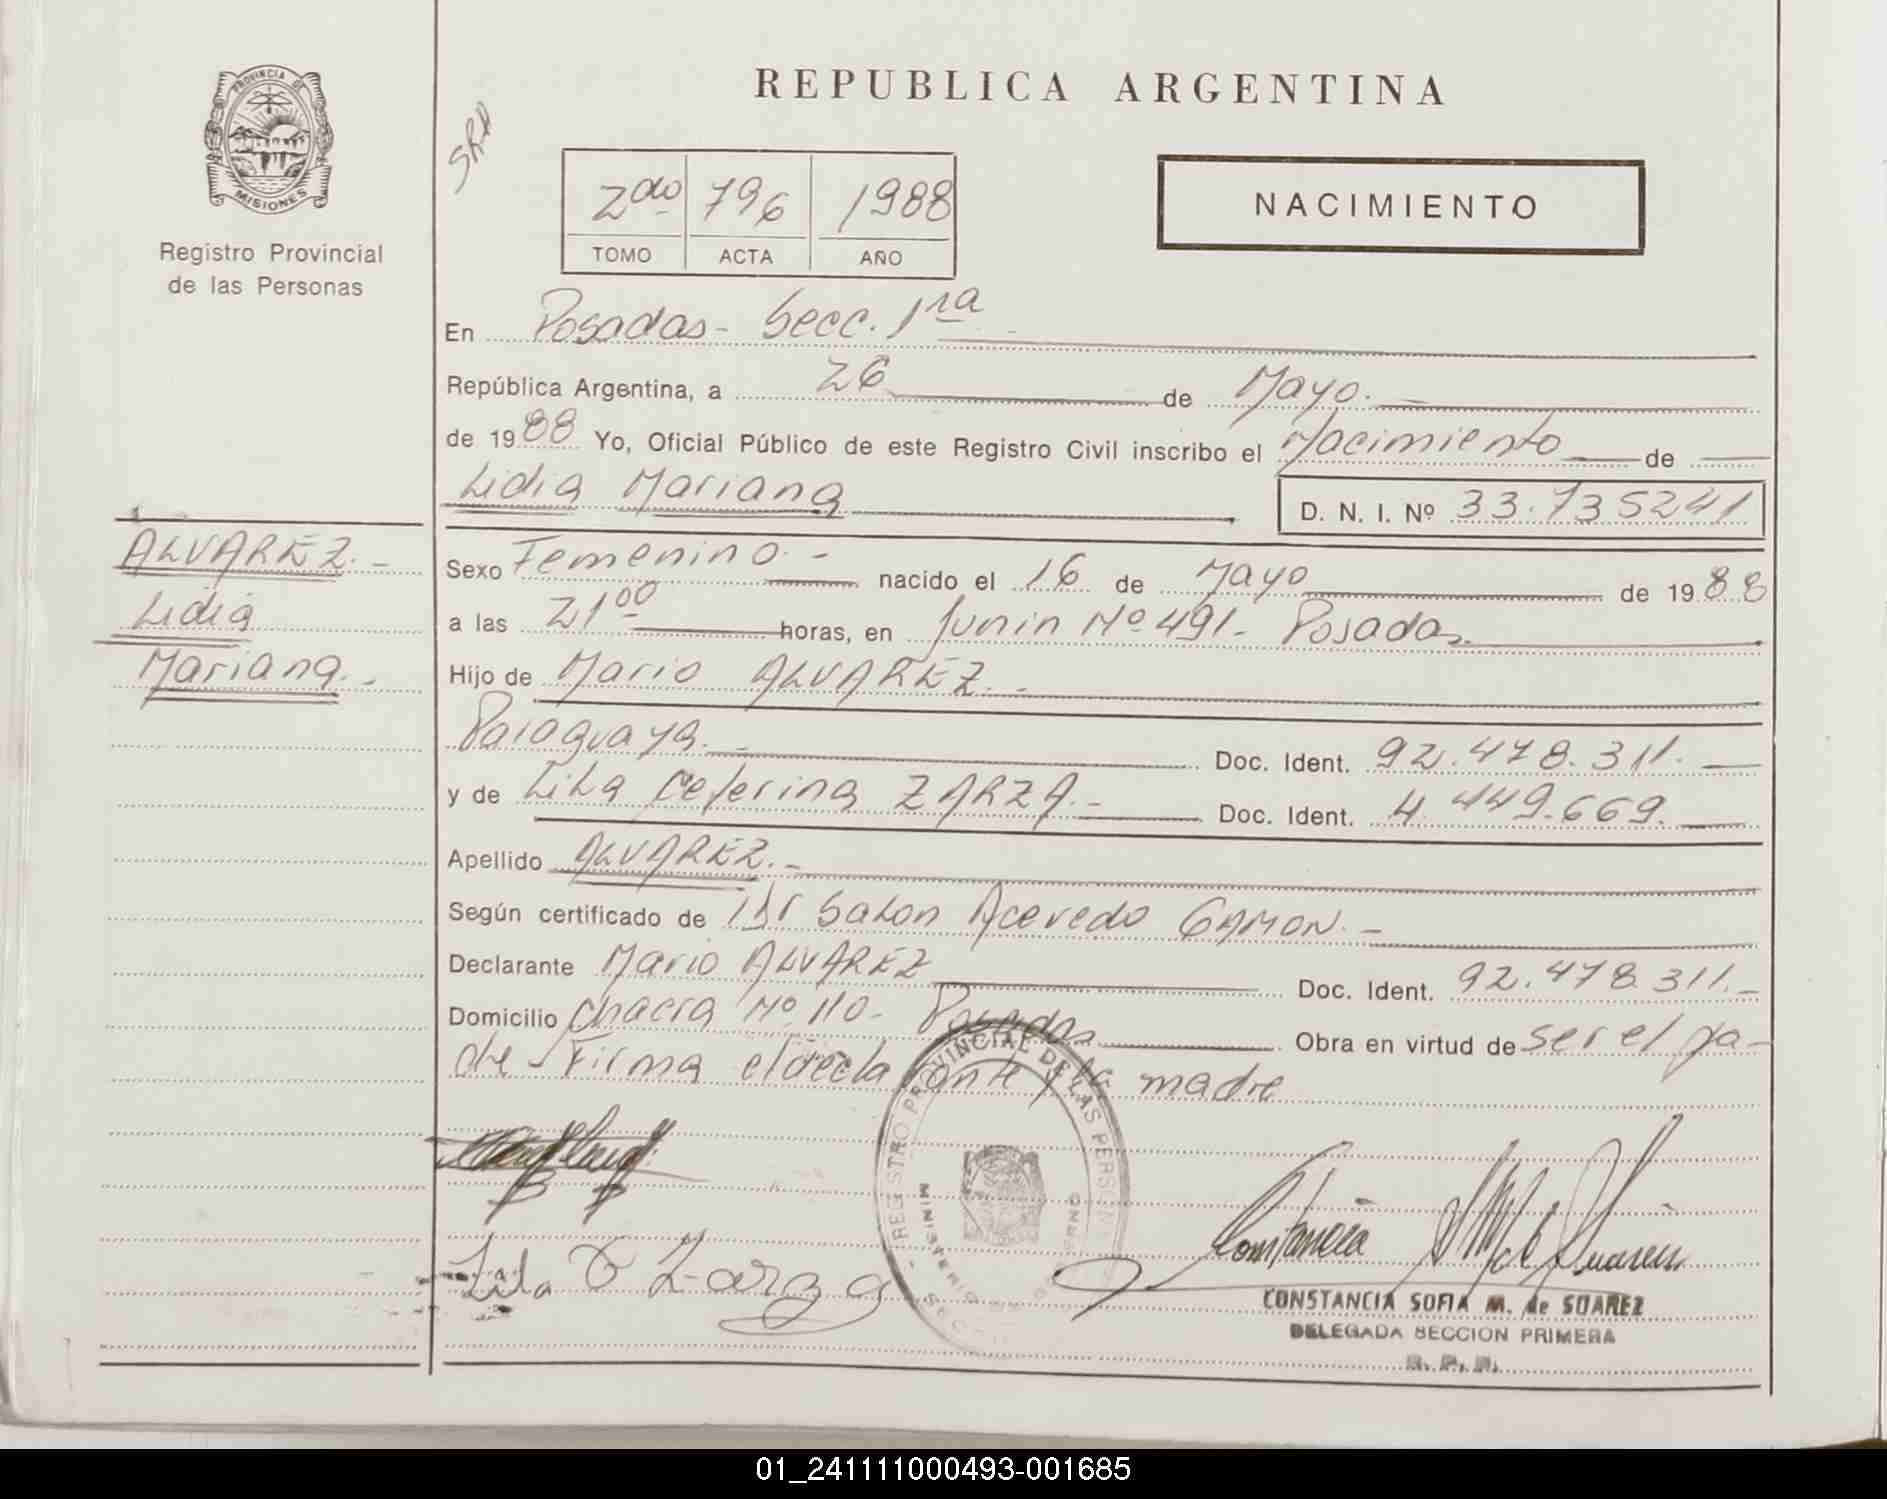 PROVINCIA DE
MISIONES
Registro Provincial
de las Personas
REPUBLICA ARGENTINA
2do 796 1988
TOMO ACTA AÑO
NACIMIENTO
En Posadas- Secc. 1ra
República Argentina, a 26 de Mayo.
de 1988 Yo, Oficial Público de este Registro Civil inscribo el Nacimiento de
Lidia Mariana
D. N. I. Nº 33.735241
ALVAREZ.-
Lidia
Mariana.-
Sexo Femenino.- nacido el 16 de Mayo de 1988
a las 21 00 horas, en Junin Nº 491- Posadas.
Hijo de Mario ALVAREZ.-
Paraguaya.- Doc. Ident. 92.478.311.-
y de Lila Ceferina ZARZA.- Doc. Ident. 4.449.669.-
Apellido ALVAREZ.-
Según certificado de Dr Salon Acevedo GAMON.-
Declarante Mario ALVAREZ Doc. Ident. 92.478.311.-
Domicilio Chacra Nº 110- Posadas Obra en virtud de ser el pa-
dre - Firma el declarante y la madre
REGISTRO PROVINCIAL DE LAS PERSONAS
MINISTERIO DE GOBIERNO
Lila C Zarza
Constancia M de Suarez
CONSTANCIA SOFIA M. de SUAREZ
DELEGADA SECCION PRIMERA
R. P. P.
01_241111000493-001685